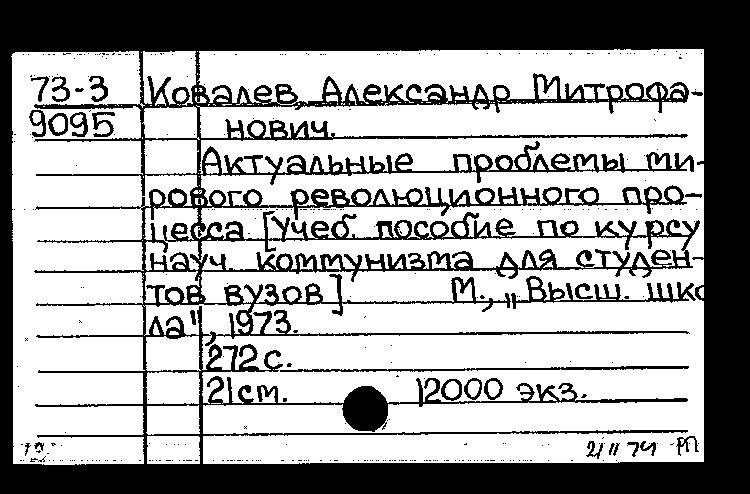 73-3 Ковалев, Александр Митрофа-
9095 нович.
Актуальные проблемы ми-
рового революционного про-
цесса [Учеб. пособие по курсу
науч. коммунизма для студен-
тов вузов]. М., „Высш. шко
ла", 1973.
272 с.
21 см. 12000 экз.
21 II 74 РП